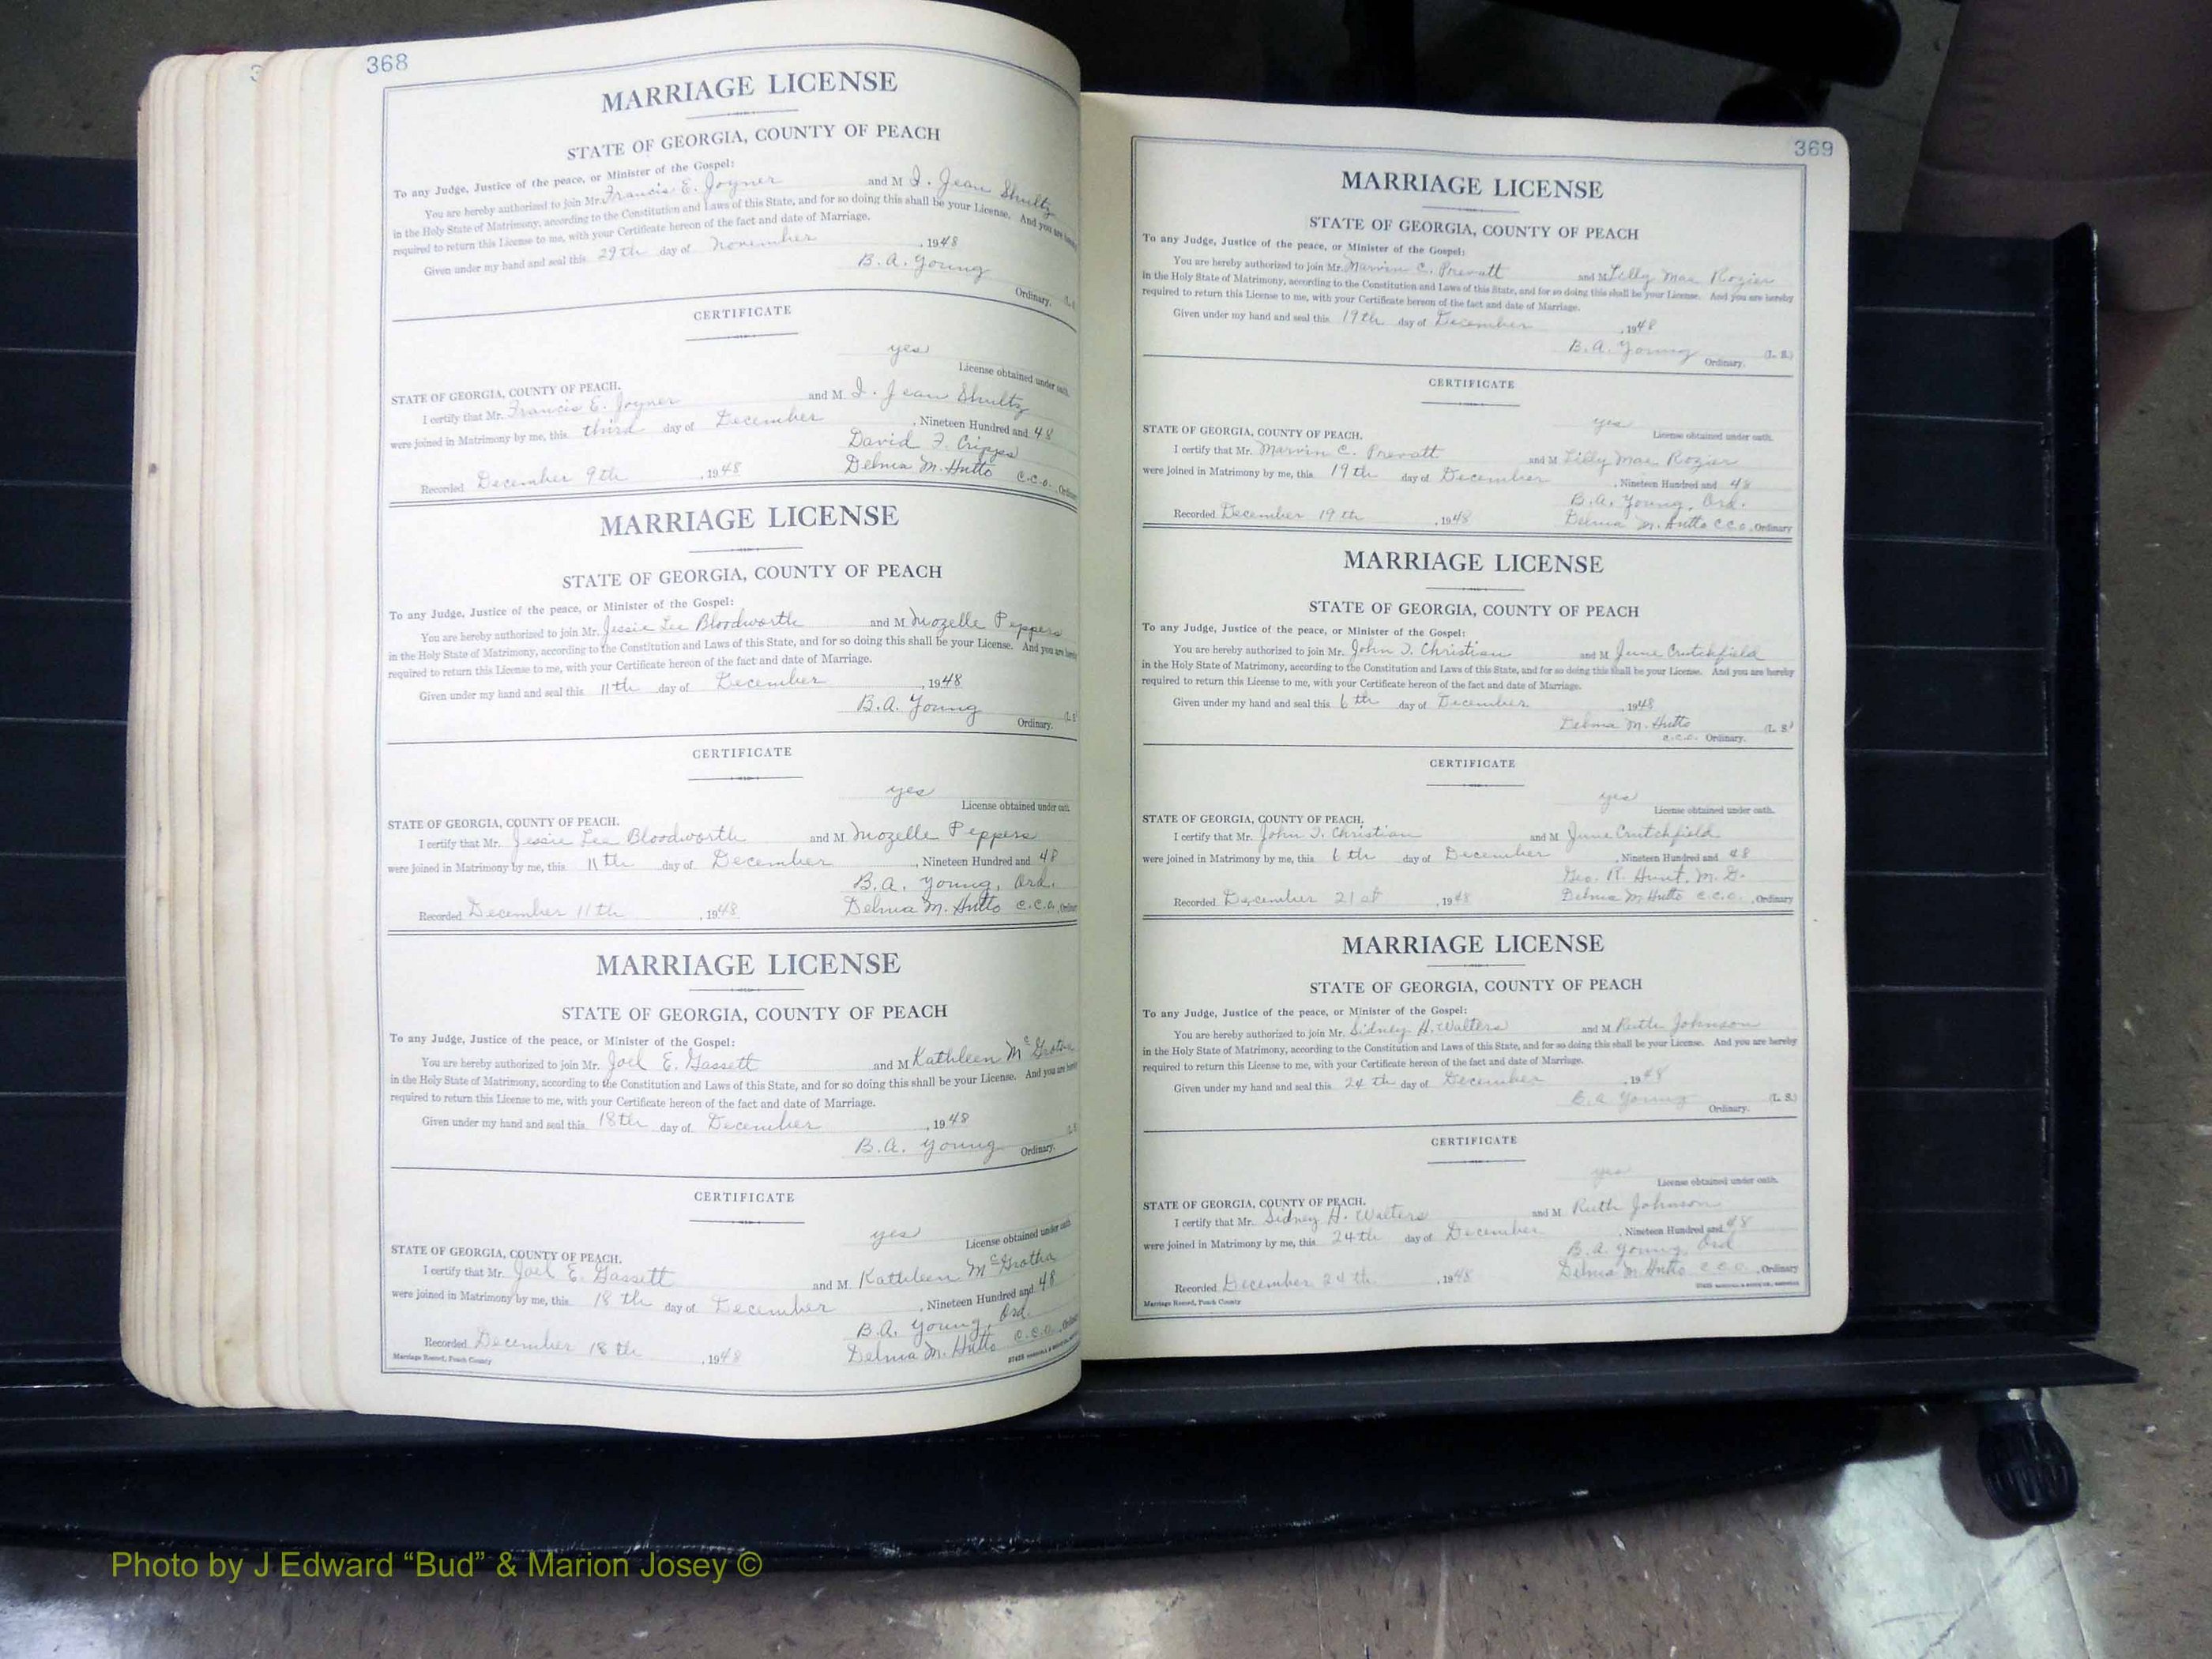 368
MARRIAGE LICENSE
STATE OF GEORGIA, COUNTY OF PEACH
To any Judge, Justice of the peace, or Minister of the Gospel:
You are hereby authorized to join Mr. Francis E. Joyner and M I. Jean Shultz
in the Holy State of Matrimony, according to the Constitution and Laws of this State, and for so doing this shall be your License. And you are hereby
required to return this License to me, with your Certificate hereon of the fact and date of Marriage.
Given under my hand and seal this 29th day of November, 1948
B.A. Young
Ordinary. (L. S.
CERTIFICATE
yes
License obtained under oath.
STATE OF GEORGIA, COUNTY OF PEACH.
I certify that Mr. Francis E. Joyner and M. I. Jean Shultz
were joined in Matrimony by me, this third day of December, Nineteen Hundred and 48
David F. Cripps
Recorded December 9th, 1948 Delma M. Hutto C.C.O. Ordinary
MARRIAGE LICENSE
STATE OF GEORGIA, COUNTY OF PEACH
To any Judge, Justice of the peace, or Minister of the Gospel:
You are hereby authorized to join Mr. Jessie Lee Bloodworth and M Mozelle Peppers
in the Holy State of Matrimony, according to the Constitution and Laws of this State, and for so doing this shall be your License. And you are hereby
required to return this License to me, with your Certificate hereon of the fact and date of Marriage.
Given under my hand and seal this 11th day of December, 1948
B.A. Young
Ordinary. (L. S
CERTIFICATE
yes
License obtained under oath.
STATE OF GEORGIA, COUNTY OF PEACH.
I certify that Mr. Jessie Lee Bloodworth and M. Mozelle Peppers
were joined in Matrimony by me, this 11th day of December, Nineteen Hundred and 48
B.A. Young, Ord.
Recorded December 11th, 1948 Delma M. Hutto C.C.O., Ordinary
MARRIAGE LICENSE
STATE OF GEORGIA, COUNTY OF PEACH
To any Judge, Justice of the peace, or Minister of the Gospel:
You are hereby authorized to join Mr. Joel E. Gassett and M Kathleen McGrotha
in the Holy State of Matrimony, according to the Constitution and Laws of this State, and for so doing this shall be your License. And you are hereby
required to return this License to me, with your Certificate hereon of the fact and date of Marriage.
Given under my hand and seal this 18th day of December, 1948
B.A. Young Ordinary.
CERTIFICATE
yes
License obtained under oath.
STATE OF GEORGIA, COUNTY OF PEACH.
I certify that Mr. Joel E. Gassett and M. Kathleen McGrotha
were joined in Matrimony by me, this 18th day of December, Nineteen Hundred and 48
B.A. Young, Ord.
Recorded December 18th, 1948 Delma M. Hutto C.C.O., Ordinary
Marriage Record, Peach County
369
MARRIAGE LICENSE
STATE OF GEORGIA, COUNTY OF PEACH
To any Judge, Justice of the peace, or Minister of the Gospel:
You are hereby authorized to join Mr. Marvin C. Prevatt and M Lilly Mae Rozier
in the Holy State of Matrimony, according to the Constitution and Laws of this State, and for so doing this shall be your License. And you are hereby
required to return this License to me, with your Certificate hereon of the fact and date of Marriage.
Given under my hand and seal this 19th day of December, 1948
B.A. Young (L. S.)
Ordinary.
CERTIFICATE
yes
License obtained under oath.
STATE OF GEORGIA, COUNTY OF PEACH.
I certify that Mr. Marvin C. Prevatt and M Lilly Mae Rozier
were joined in Matrimony by me, this 19th day of December, Nineteen Hundred and 48
B.A. Young, Ord.
Recorded December 19th, 1948 Delma M. Hutto C.C.O., Ordinary
MARRIAGE LICENSE
STATE OF GEORGIA, COUNTY OF PEACH
To any Judge, Justice of the peace, or Minister of the Gospel:
You are hereby authorized to join Mr. John T. Christian and M June Crutchfield
in the Holy State of Matrimony, according to the Constitution and Laws of this State, and for so doing this shall be your License. And you are hereby
required to return this License to me, with your Certificate hereon of the fact and date of Marriage.
Given under my hand and seal this 6th day of December, 1948
Delma M. Hutto (L. S.)
C.C.O. Ordinary.
CERTIFICATE
yes
License obtained under oath.
STATE OF GEORGIA, COUNTY OF PEACH,
I certify that Mr. John T. Christian and M. June Crutchfield
were joined in Matrimony by me, this 6th day of December, Nineteen Hundred and 48
Geo. R. Hunt, M.G.
Recorded December 21st, 1948 Delma M Hutto C.C.O., Ordinary
MARRIAGE LICENSE
STATE OF GEORGIA, COUNTY OF PEACH
To any Judge, Justice of the peace, or Minister of the Gospel:
You are hereby authorized to join Mr. Sidney H. Walters and M Ruth Johnson
in the Holy State of Matrimony, according to the Constitution and Laws of this State, and for so doing this shall be your License. And you are hereby
required to return this License to me, with your Certificate hereon of the fact and date of Marriage.
Given under my hand and seal this 24th day of December, 1948
B.A. Young (L. S.)
Ordinary.
CERTIFICATE
yes
License obtained under oath.
STATE OF GEORGIA, COUNTY OF PEACH.
I certify that Mr. Sidney H. Walters and M Ruth Johnson
were joined in Matrimony by me, this 24th day of December, Nineteen Hundred and 48
B.A. Young Ord
Recorded December 24th, 1948 Delma M Hutto C.C.O., Ordinary
Marriage Record, Peach County
Photo by J Edward “Bud” & Marion Josey ©